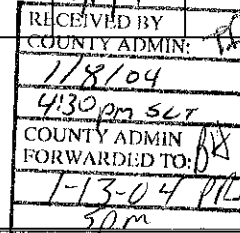 RECEIVED BY
COUNTY ADMIN:
1/8/04
4:30 pm SLT
COUNTY ADMIN
FORWARDED TO:
1-13-04